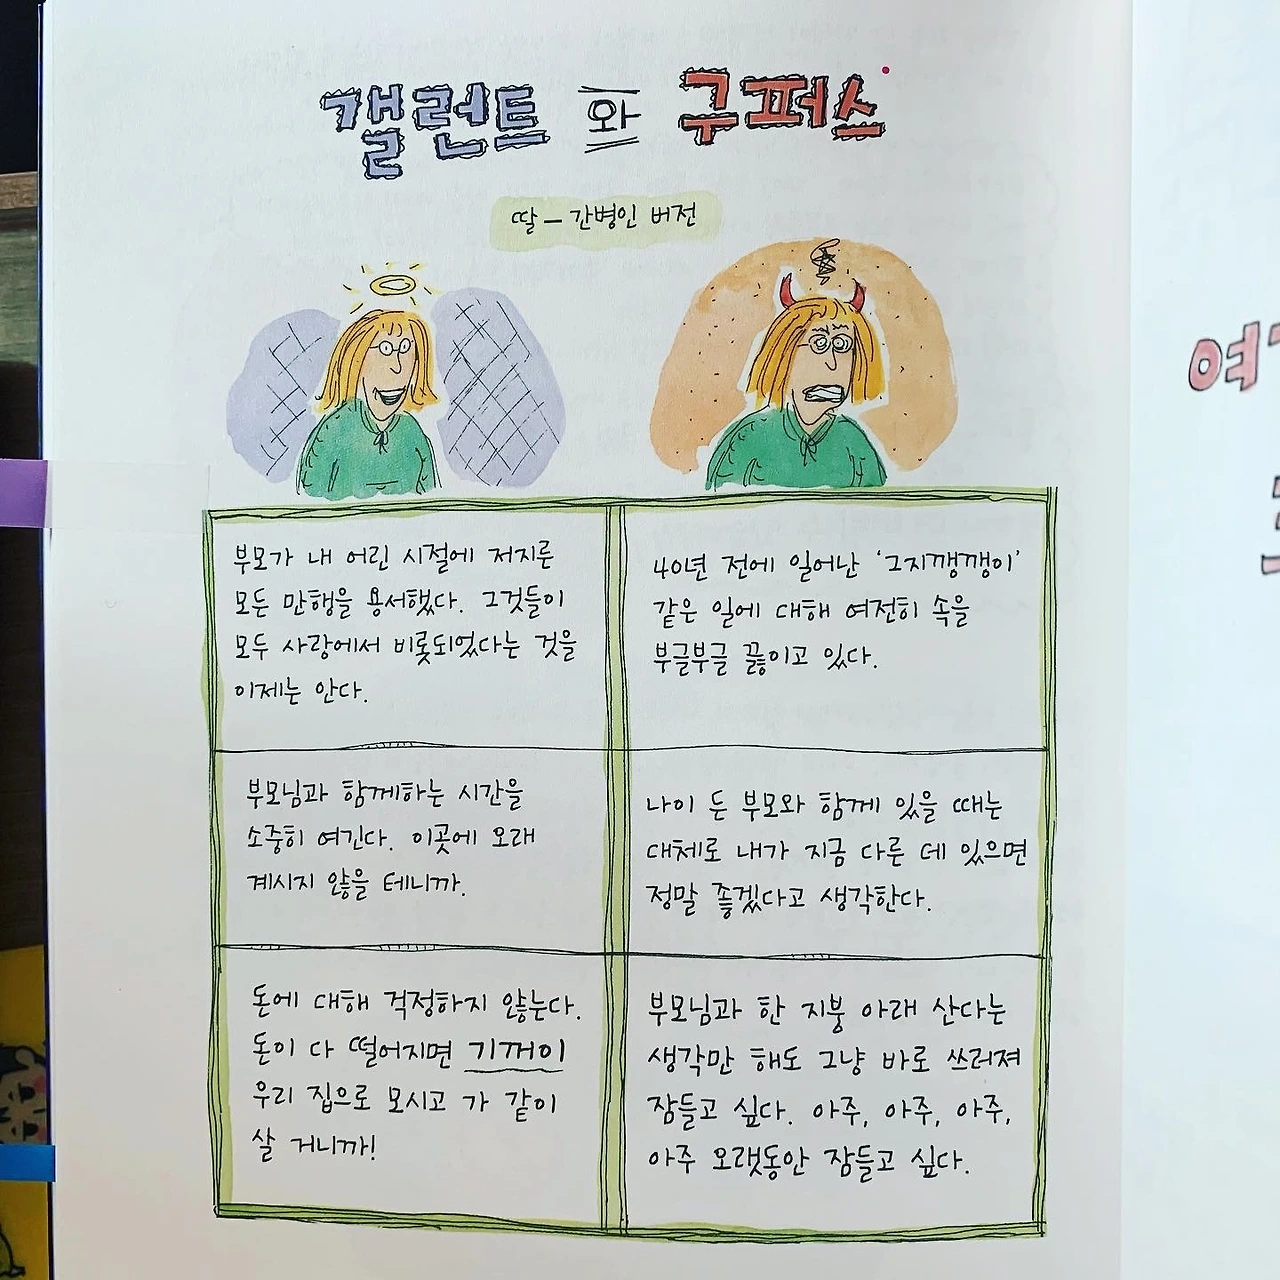 갤런트 와 구퍼스
딸 – 간병인 버전
부모가 내 어린 시절에 저지른
모든 만행을 용서했다. 그것들이
모두 사랑에서 비롯되었다는 것을
이제는 안다.
40년 전에 일어난 '그지깽깽이'
같은 일에 대해 여전히 속을
부글부글 끓이고 있다.
부모님과 함께하는 시간을
소중히 여긴다. 이곳에 오래
계시지 않을 테니까.
나이 든 부모와 함께 있을 때는
대체로 내가 지금 다른 데 있으면
정말 좋겠다고 생각한다.
돈에 대해 걱정하지 않는다.
돈이 다 떨어지면 기꺼이
우리 집으로 모시고 가 같이
살 거니까!
부모님과 한 지붕 아래 산다는
생각만 해도 그냥 바로 쓰러져
잠들고 싶다. 아주, 아주, 아주,
아주 오랫동안 잠들고 싶다.
여